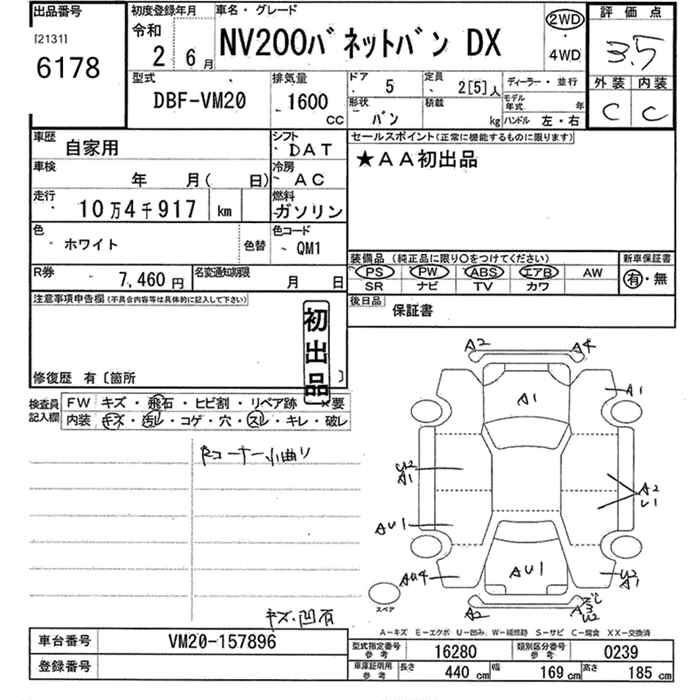 出品番号 初度登録年月 車名・グレード 評価点
[2131] 令和 2WD
6178 2 6月 NV200バネットバン DX ・ 3.5
4WD
型式 排気量 ドア 5 定員 2[5]人 ディーラー・並行 外装 内装
DBF-VM20 1600 cc 形状 バン 積載 kg モデル年式 年 C C
ハンドル 左・右
車歴 自家用 シフト DAT セールスポイント(正常に機能するものに限ります)
車検 年 月( 日) 冷房 AC ★AA初出品
走行 10万4千917 km 燃料 ガソリン
色 ホワイト 色替 色コード QM1 装備品(純正品に限り○をつけてください) 新車保証書
PS PW ABS エアB AW 有・無
R券 7,460円 名変通知期限 月 日 SR ナビ TV カワ
注意事項申告欄(不具合内容等は具体的に記入して下さい) 後日品 保証書
初出品
修復歴 有〔箇所 〕
検査員記入欄 FW キズ・飛石・ヒビ割・リペア跡 ×要
内装 キズ・汚レ・コゲ・穴・スレ・キレ・破レ
A2 A4
A1 A1
コーナー小曲り
U2 A1 A2 U1
AU1
AU4 AU1 U2 A1
スペア A2
キズ・凹有
A-キズ E-エクボ U-凹み W-補修跡 S-サビ C-腐食 XX-交換済
車台番号 VM20-157896 型式指定番号参考 16280 類別区分番号参考 0239
登録番号 車庫証明用参考 長さ 440cm 幅 169cm 高さ 185cm